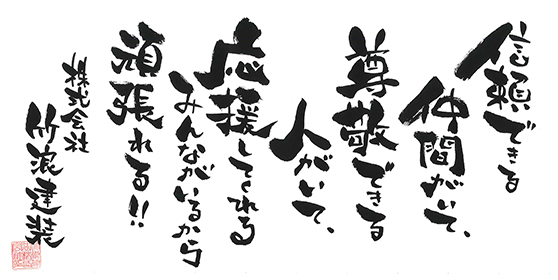 信頼できる
仲間がいて、
尊敬できる
人がいて、
応援してくれる
みんながいるから
頑張れる!!
株式会社
竹浪建装